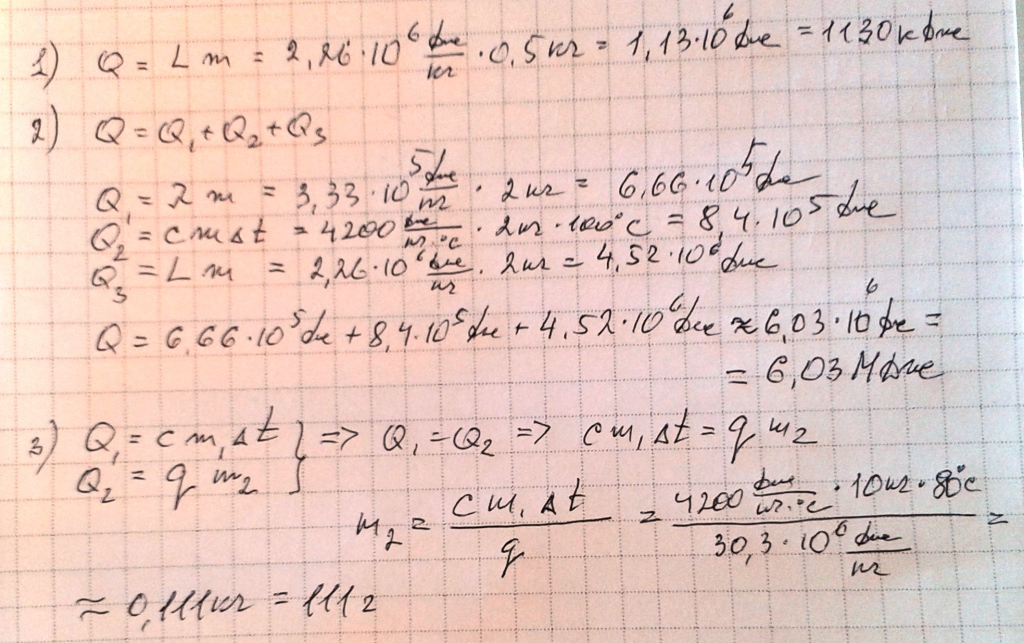 1) Q = L m = 2,26·10⁶ Дж/кг · 0,5 кг = 1,13·10⁶ Дж = 1130 кДж
2) Q = Q₁ + Q₂ + Q₃
Q₁ = λ m = 3,33·10⁵ Дж/кг · 2 кг = 6,66·10⁵ Дж
Q₂ = c m Δt = 4200 Дж/кг·°C · 2 кг · 100°C = 8,4·10⁵ Дж
Q₃ = L m = 2,26·10⁶ Дж/кг · 2 кг = 4,52·10⁶ Дж
Q = 6,66·10⁵ Дж + 8,4·10⁵ Дж + 4,52·10⁶ Дж ≈ 6,03·10⁶ Дж =
= 6,03 МДж
3) Q₁ = c m₁ Δt } => Q₁ = Q₂ => c m₁ Δt = q m₂
Q₂ = q m₂
m₂ = c m₁ Δt / q = 4200 Дж/кг·°C · 10 кг · 80°C / 30,3·10⁶ Дж/кг =
≈ 0,111 кг = 111 г